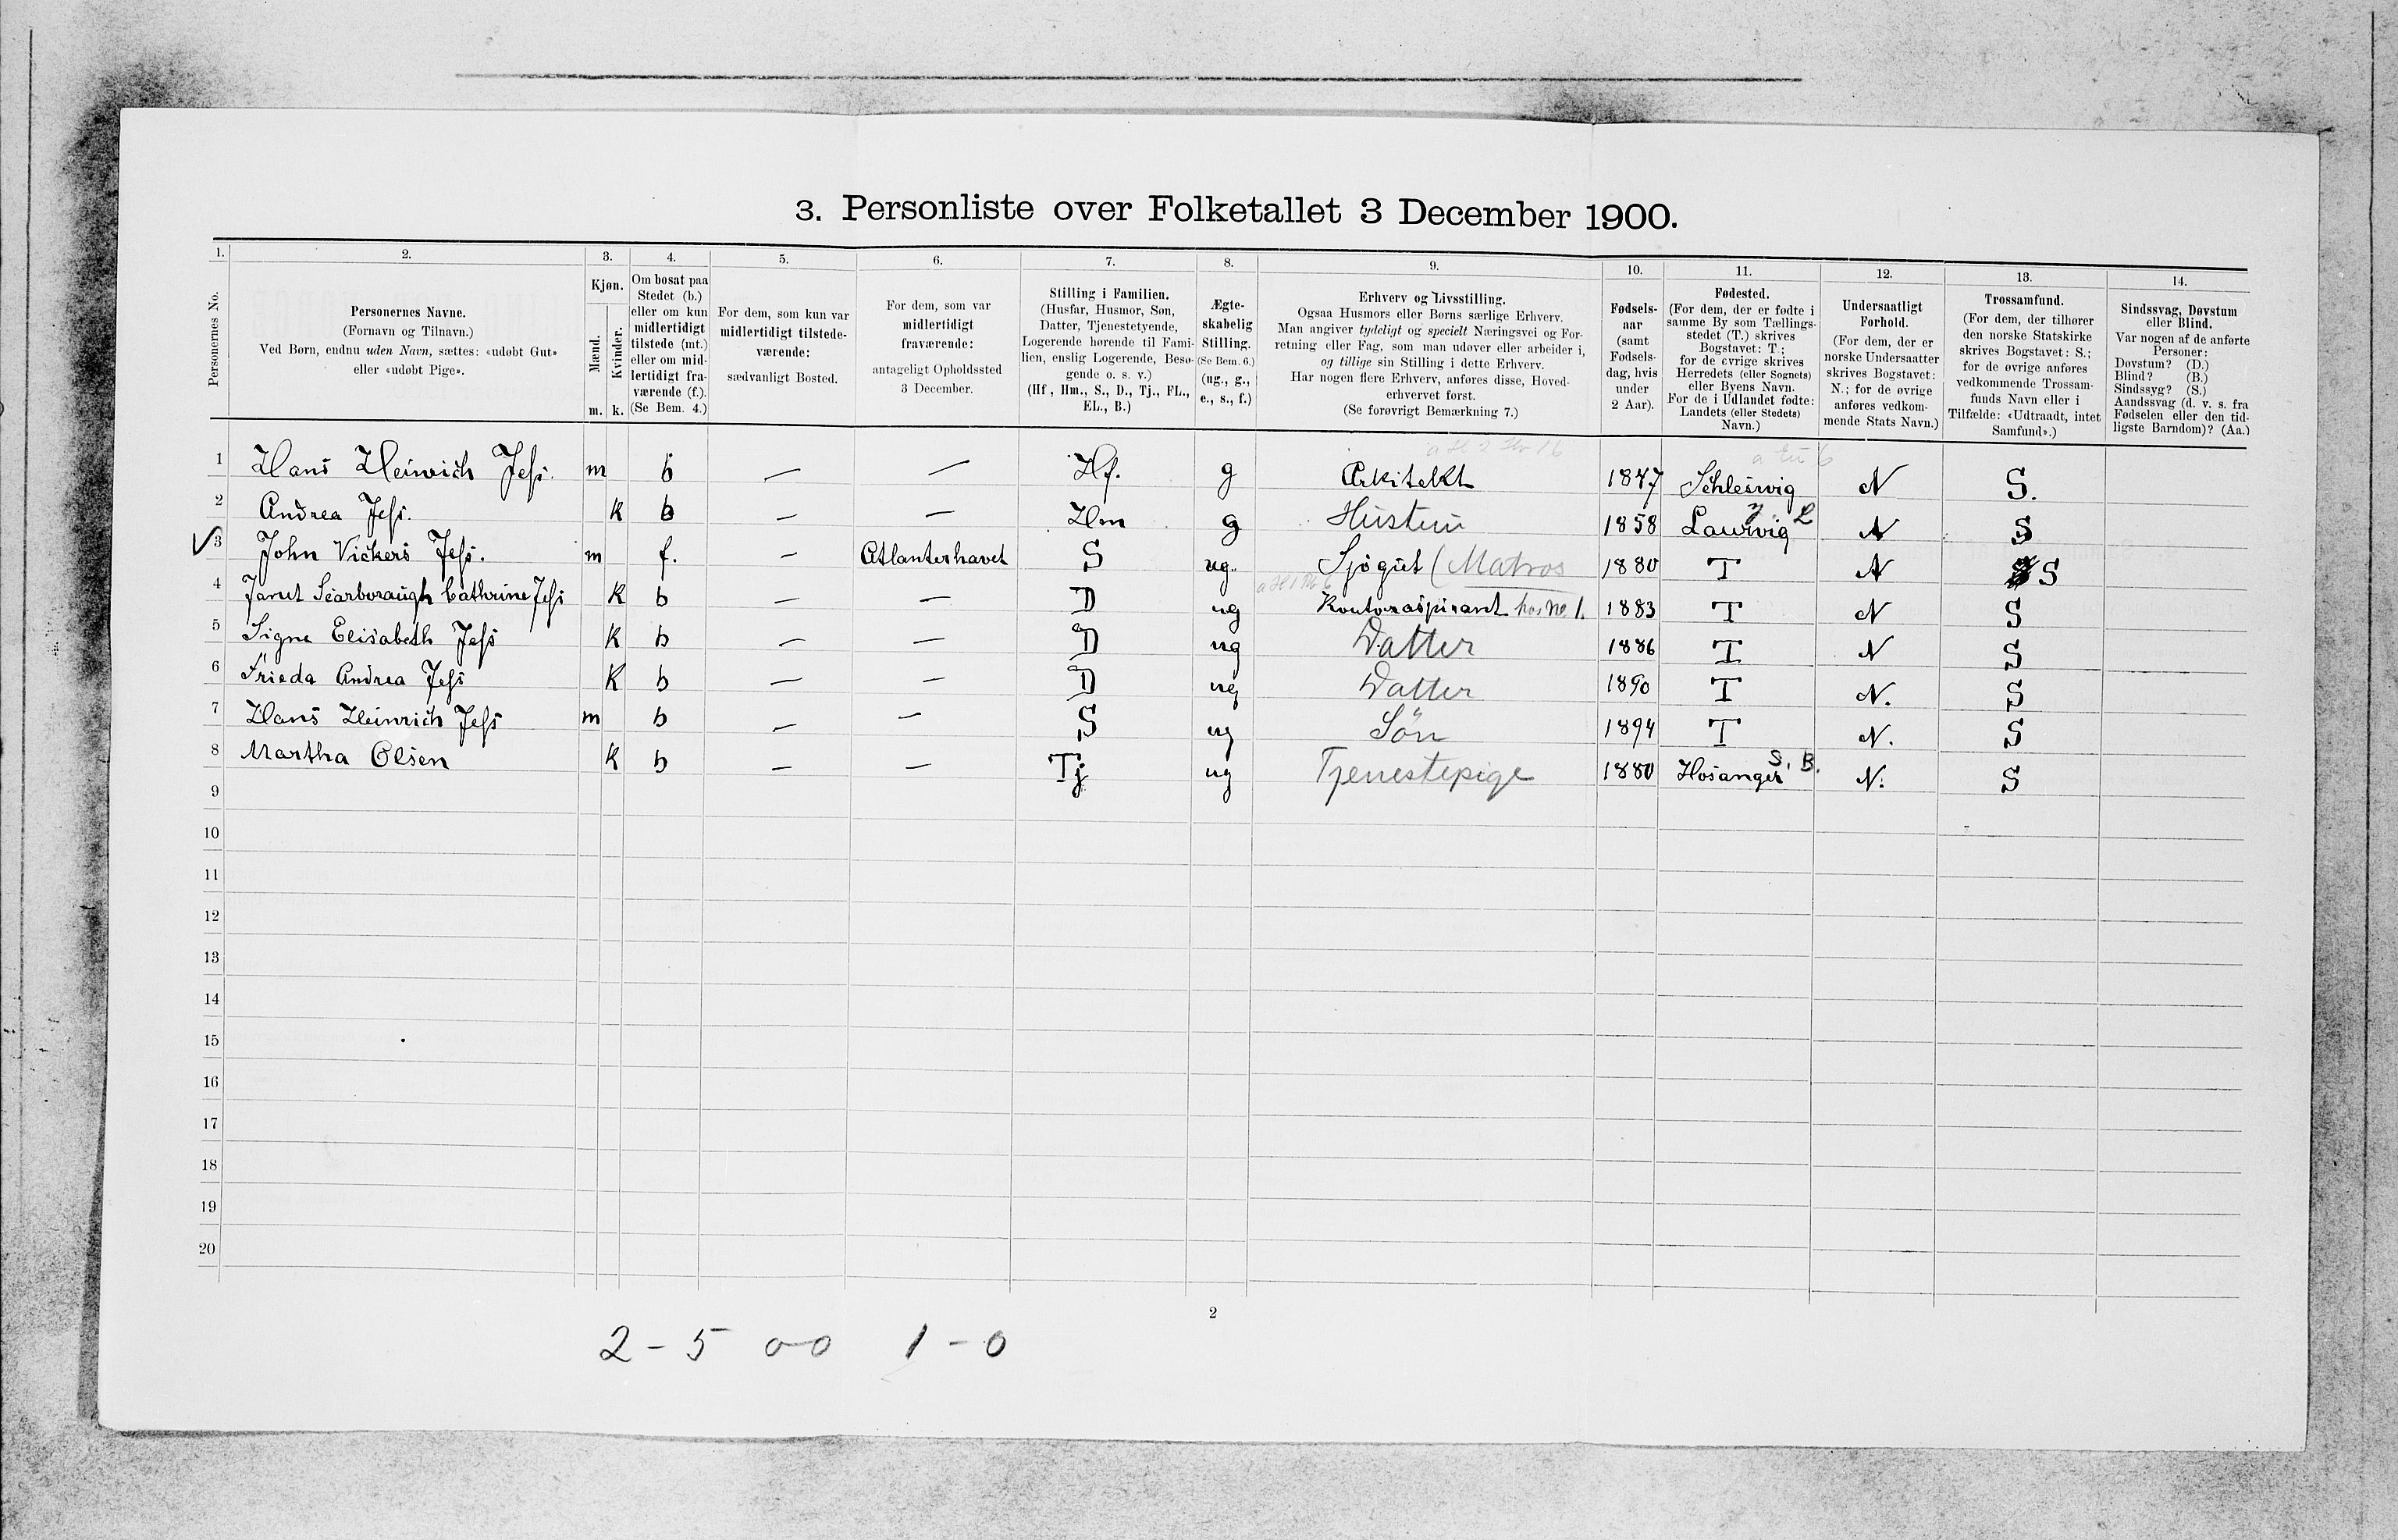 3. Personliste over Folketallet 3 December 1900.
1. 2. 3. 4. 5. 6. 7. 8. 9. 10. 11. 12. 13. 14.
Personernes No.
Personernes Navne.
(Fornavn og Tilnavn.)
Ved Børn, endnu uden Navn, sættes: «udøbt Gut»
eller «udøbt Pige».
Kjøn.
Mænd. Kvinder.
m. k.
Om bosat paa
Stedet (b.)
eller om kun
midlertidigt
tilstede (mt.)
eller om mid-
lertidigt fra-
værende (f.).
(Se Bem. 4.)
For dem, som kun var
midlertidigt tilstede-
værende:
sædvanligt Bosted.
For dem, som var
midlertidigt
fraværende:
antageligt Opholdssted
3 December.
Stilling i Familien.
(Husfar, Husmor, Søn,
Datter, Tjenestetyende,
Logerende hørende til Fami-
lien, enslig Logerende, Besø-
gende o. s. v.)
(Hf, Hm., S., D., Tj., FL.,
EL., B.)
Ægte-
skabelig
Stilling.
(Se Bem. 6.)
(ug., g.,
e., s., f.)
Erhverv og Livsstilling.
Ogsaa Husmors eller Børns særlige Erhverv.
Man angiver tydeligt og specielt Næringsvei og For-
retning eller Fag, som man udøver eller arbeider i,
og tillige sin Stilling i dette Erhverv.
Har nogen flere Erhverv, anføres disse, Hoved-
erhvervet først.
(Se forøvrigt Bemærkning 7.)
Fødsels-
aar
(samt
Fødsels-
dag, hvis
under
2 Aar).
Fødested.
(For dem, der er fødte i
samme By som Tællings-
stedet (T.) skrives
Bogstavet: T.;
for de øvrige skrives
Herredets (eller Sognets)
eller Byens Navn.
For de i Udlandet fødte:
Landets (eller Stedets)
Navn.)
Undersaatligt
Forhold.
(For dem, der er
norske Undersaatter
skrives Bogstavet:
N.; for de øvrige
anføres vedkom-
mende Stats Navn.)
Trossamfund.
(For dem, der tilhører
den norske Statskirke
skrives Bogstavet: S.;
for de øvrige anføres
vedkommende Trossam-
funds Navn eller i
Tilfælde: «Udtraadt, intet
Samfund».)
Sindssvag, Døvstum
eller Blind.
Var nogen af de anførte
Personer:
Døvstum? (D.)
Blind? (B.)
Sindssyg? (S.)
Aandssvag (d. v. s. fra
Fødselen eller den tid-
ligste Barndom)? (Aa.)
1 Hans Heinrich Jess. m b — — Hf. g Arkitekt 1847 Schleswig N S.
2 Andrea Jess. k b — — Hm g Hustru 1858 Laurvig L N S
3 John Vickers Jess. m f. — Atlanterhavet S ug. Sjøgut (Matros 1880 T N S
4 Janet Scarboraugh Cathrine Jess K b — — D ug Kontoraspirant hos No 1. 1883 T N S
5 Signe Elisabeth Jess K b — — D ug Datter 1886 T N S
6 Frieda Andrea Jess K b — — D ug Datter 1890 T N. S
7 Hans Heinrich Jess m b — — S ug Søn 1894 T N. S
8 Martha Olsen K b — — Tj ug Tjenestepige 1880 Hosanger S. B. N. S
9
10
11
12
13
14
15
16
17
18
19
20
2
2 - 5 0-0 1 - 0